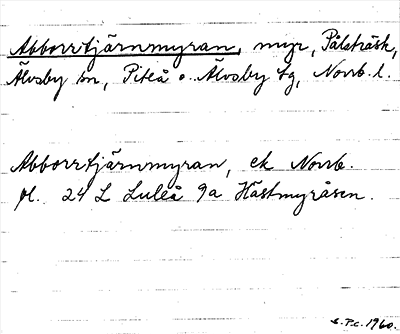 Abborrtjärnmyran, myr, Pålsträsk,
Älvsby sn, Piteå o. Älvsby tg, Norrb. l.
Abborrtjärnmyran, ek Norrb.
fl. 24 L Luleå 9a Hästmyråsen.
S.P.C. 1960.